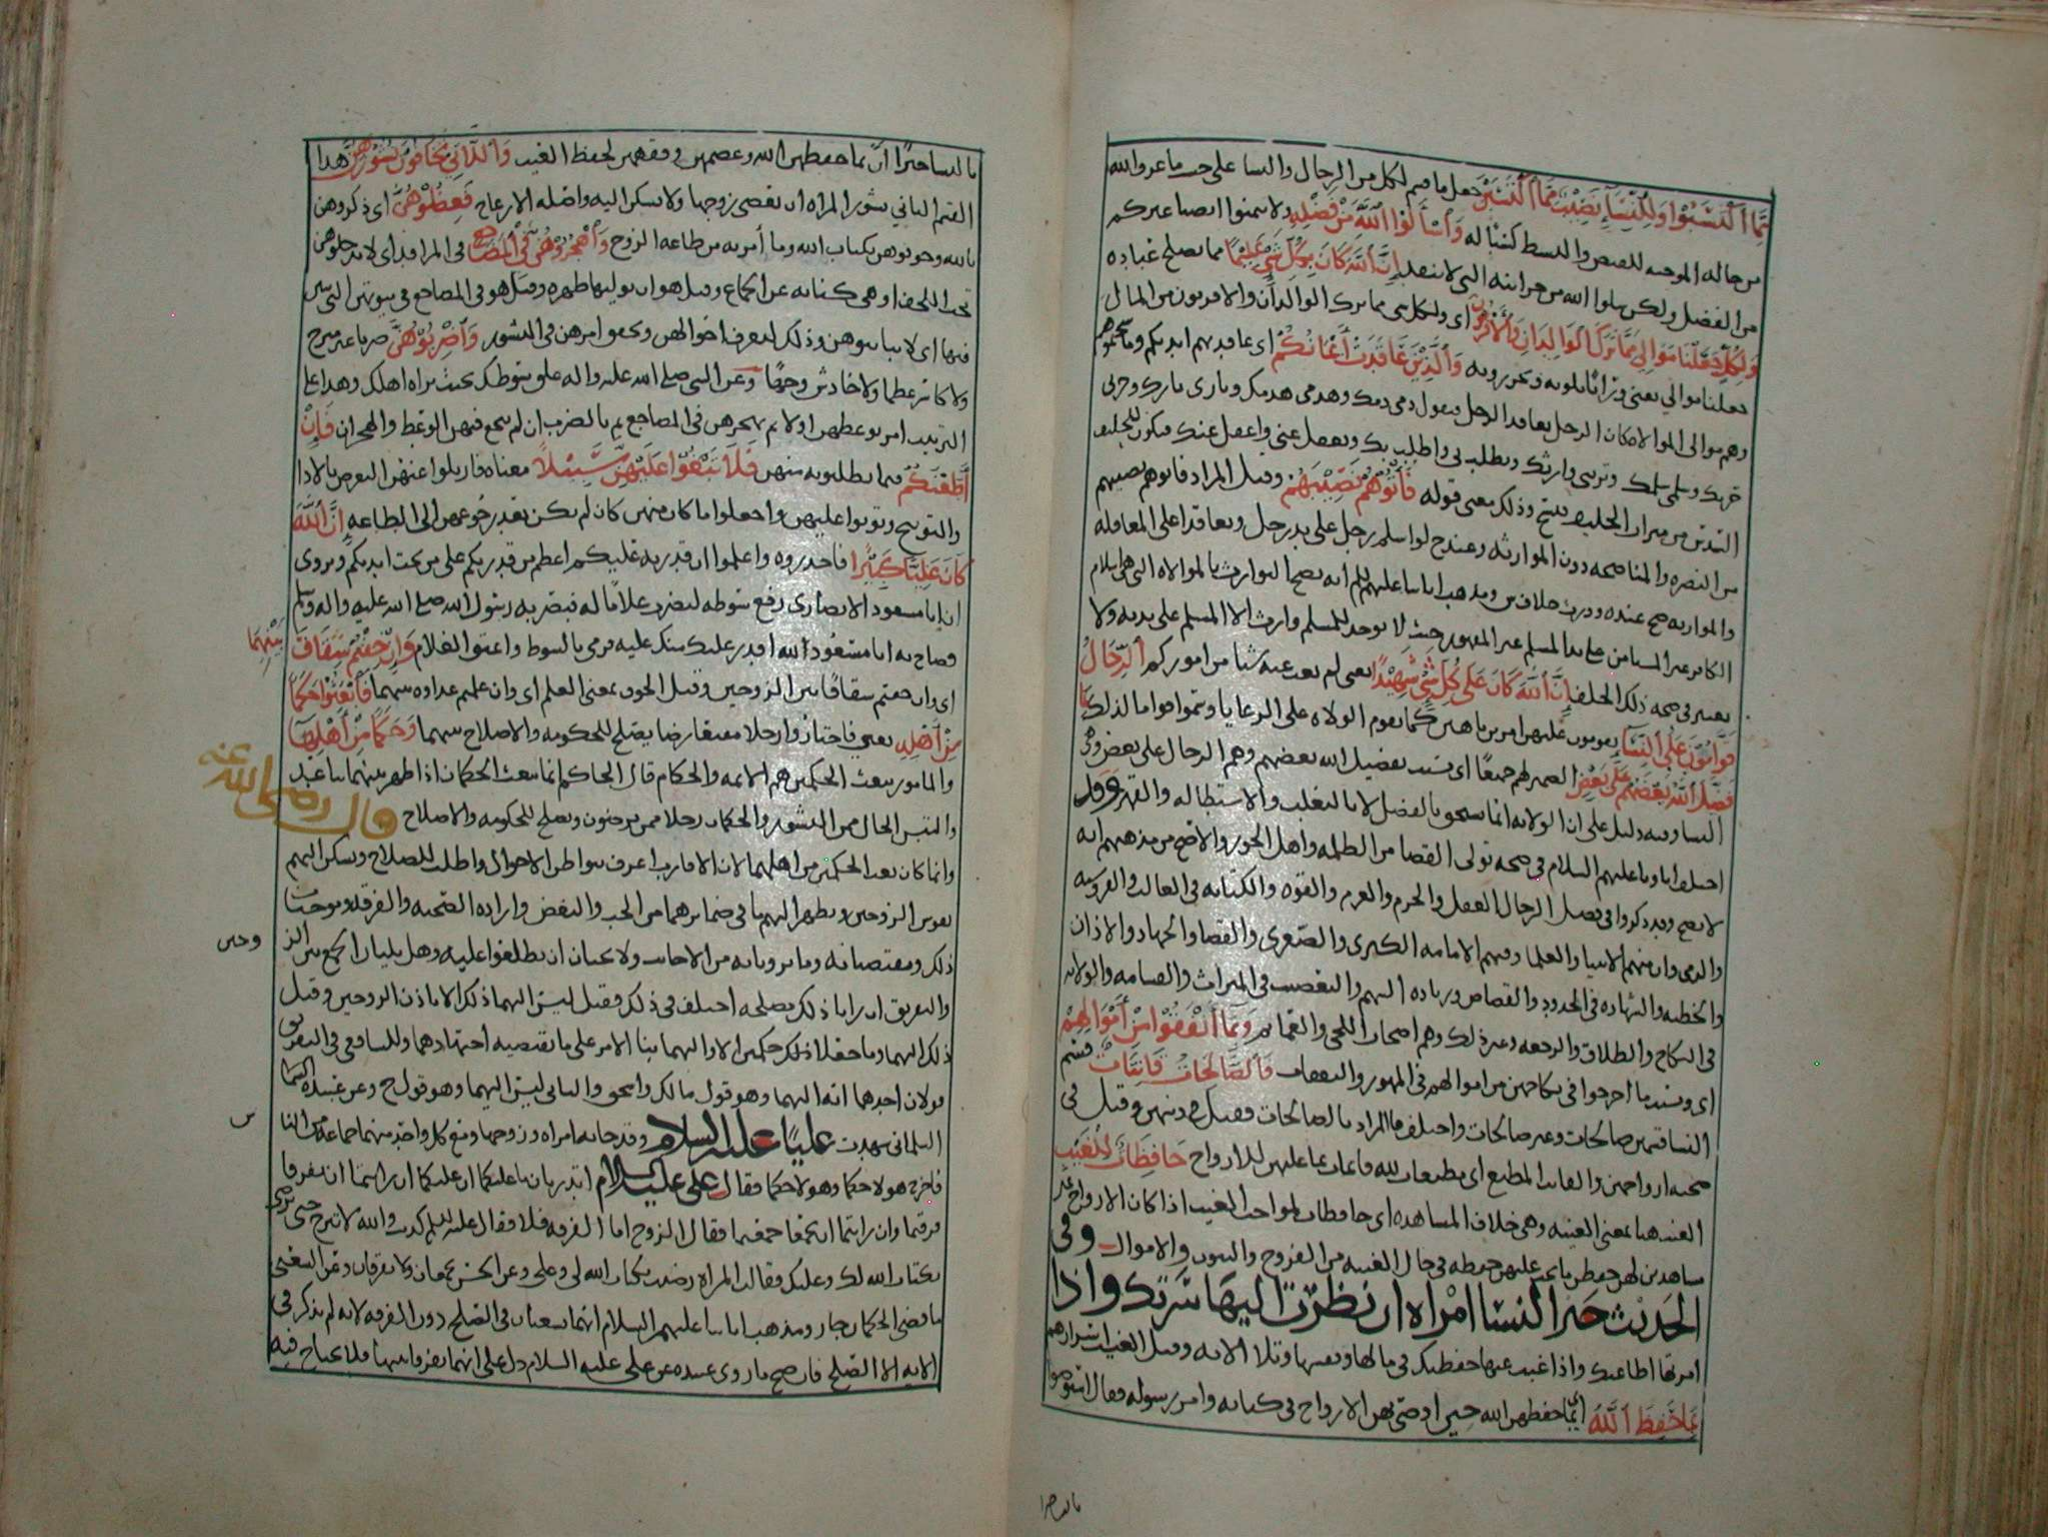 مما اكتسبوا وللنساء نصيب مما اكتسبن جعل ما قسم لكل من الرجال والنسا على حسب ما عرف الله
من حاله الموجبه للقبض والبسط كسبا له وَاسْأَلُوا اللَّهَ مِنْ فَضْلِهِ ولا تتمنوا انصبا غيركم
من الفضل ولكن سلوا الله من خزائنه التي لا تنفد إِنَّ اللَّهَ كَانَ بِكُلِّ شَيْءٍ عَلِيمًا مما يصلح عباده
وَلِكُلٍّ جَعَلْنَا مَوَالِيَ مِمَّا تَرَكَ الْوَالِدَانِ وَالْأَقْرَبُونَ اي ولكل شي مما ترك الوالدان والاقربون من المال
جعلنا موالي يعني وراثا يلونه ويحرزونه وَالَّذِينَ عَاقَدَتْ أَيْمَانُكُمْ اي عاقدتهم ايديكم
وهم موالي الموالاه كان الرجل يعاقد الرجل فيقول دمي دمك وهدمي هدمك وثاري ثارك وحربي
حربك وسلمي سلمك وترثني وارثك وتطلب بي واطلب بك وتعقل عني واعقل عنك فيكون للحليف
السدس من ميراث الحليف فنسخ وذلك معنى قوله فَآتُوهُمْ نَصِيبَهُمْ وقيل المراد فاتوهم نصيبهم
من النصره والمناصحه دون الموارثه وعند ح لو اسلم رجل على يد رجل وتعاقدا على
صح عنده وورث خلاف ش ومذهب ابائنا عليهم السلم انه يصح التوارث بالموالاه التي هي اسلام
الكافر على يد المسلم حيث لا يوجد للمسلم وارث الا المسلم على يديه ولا
يعتبر في صحه ذلك الحلف إِنَّ اللَّهَ كَانَ عَلَى كُلِّ شَيْءٍ شَهِيدًا يعني لم يغب عنه شيا من اموركم الرِّجَالُ
قَوَّامُونَ عَلَى النِّسَاءِ يقومون عليهن امرين ناهين كما يقوم الولاه على الرعايا وسموا قواما لذلك بِمَا
فَضَّلَ اللَّهُ بَعْضَهُمْ عَلَى بَعْضٍ الضمير لهم جميعا اي بسبب تفضيل الله بعضهم وهم الرجال على بعض وهم
النسا وفيه دليل على ان الولايه انما تستحق بالفضل لا بالتغلب والاستطاله والقهر وقد
اختلف اباونا عليهم السلام في صحه تولي القضا من الظلمه واهل الجور والاصح من مذهبهم انه
لا يصح وقد ذكروا في فضل الرجال العقل والحزم والعزم والقوه والكتابه في الغالب والفروسيه
والرمي وان منهم الانبيا والعلما وفيهم الامامه الكبرى والصغرى والقضا والجهاد والاذان
والخطبه والشهاده في الحدود والقصاص وزياده السهم والتعصيب في الميراث والقسامه والولايه
في النكاح والطلاق والرجعه وغير ذلك وهم اصحاب اللحى والعمائم وَبِمَا أَنْفَقُوا مِنْ أَمْوَالِهِمْ
اي وبسبب ما اخرجوا في نكاحهن من اموالهم في المهور والنفقات فَالصَّالِحَاتُ قَانِتَاتٌ قسم
النسا قسمين صالحات وغير صالحات واختلف ما المراد بالصالحات فقيل في دينهن وقيل في
صحبه ازواجهن والقانت المطيع اي مطيعات لله قائمات بما عليهن للازواج حَافِظَاتٌ لِلْغَيْبِ
الغيب هنا بمعنى الغيبه وهي خلاف المشاهده اي حافظات لمواجب الغيب اذا كان الازواج غير
شاهدين لهن حفظن ما يجب عليهن حفظه في حال الغيبه من الفروج والبيوت والاموال وفي
الحديث خير النسا امراه ان نظرت اليها سرتك واذا
امرتها اطاعتك واذا غبت عنها حفظتك في مالها ونفسها وتلا الايه وقيل الغيب اسرارهم
بِمَا حَفِظَ اللَّهُ اي بما حفظهن الله حين اوصى بهن الازواج في كتابه وامر رسوله فقال استوصوا
بالنسا خيرا
بالنسا خيرا او بما حفظهن الله وعصمهن ووفقهن لحفظ الغيب وَاللَّاتِي تَخَافُونَ نُشُوزَهُنَّ هذا
القسم الثاني نشوز المراه ان تعصي زوجها ولا تسكن اليه واصله الازعاج فَعِظُوهُنَّ اي ذكروهن
بالله وخوفوهن بكتاب الله وما أمر به من طاعه الزوج وَاهْجُرُوهُنَّ فِي الْمَضَاجِعِ في المراقد اي لا تدخلوهن
تحت اللحف او هي كنايه عن الجماع وقيل هو ان يوليها ظهره وقيل هو في المضاجع في بيوتهن التي يبتن
فيها اي لا تبايتوهن وذلك لتعرف احوالهن وتحقق امرهن في النشوز وَاضْرِبُوهُنَّ ضربا غير مبرح
ولا كاسر عظما ولا خادش وجها وعن النبي صلى الله عليه واله علق سوطك بحيث يراه اهلك وهذا على
الترتيب امر بوعظهن اولا ثم بهجرهن في المضاجع ثم بالضرب ان لم ينجع فيهن الوعظ والهجران فَإِنْ
أَطَعْنَكُمْ فيما تطلبونه منهن فَلَا تَبْغُوا عَلَيْهِنَّ سَبِيلًا معناه فازيلوا عنهن التعرض بالاذا
والتوبيخ وتوبوا عليهن واجعلوا ما كان منهن كان لم يكن بعد رجوعهن الى الطاعه إِنَّ اللَّهَ
كَانَ عَلِيًّا كَبِيرًا فاحذروه واعلموا ان قدرته عليكم اعظم من قدرتكم على من تحت ايديكم ويروى
ان ابا مسعود الانصاري رفع سوطه ليضرب غلاما له فبصر به رسول الله صلى الله عليه واله وسلم
فصاح به ابا مسعود الله اقدر عليك منك عليه فرمى بالسوط واعتق الغلام وَإِنْ خِفْتُمْ شِقَاقَ
بَيْنِهِمَا
اي وان خفتم شقاقا بين الزوجين وقيل الخوف بمعنى العلم اي وان علمتم عداوه بينهما فَابْعَثُوا حَكَمًا
مِنْ أَهْلِهِ يعني فاختاروا رجلا مقنعا رضا يصلح للحكومه والاصلاح بينهما وَحَكَمًا مِنْ أَهْلِهَا
والمامور ببعث الحكمين هم الائمه والحكام قال الحاكم انما يبعث الحكمان اذا ظهر بينهما تباعد
والتبس الحال ممن النشوز والحكمان رجلان ممن يرضون ويصلح للحكومه والاصلاح قال رضي الله عنه
وانما كان بعث الحكمين من اهلهما لان الاقارب اعرف ببواطن الاحوال واطلب للصلاح وتسكن اليهم
نفوس الزوجين ويظهر اليهم ما في ضمائرهما من الحب والبغض واراده الصحبه والفرقه وموجبات
ذلك ومقتضياته وما يزويانه من الاجانب ولا يحبان ان يطلعوا عليه وهل يليان الجمع بين الز
وجين
والتفريق ان رايا ذلك مصلحه اختلف في ذلك فقيل ليس اليهما ذلك الا باذن الزوجين وقيل
ذلك اليهما وما جعلا كذلك حكمين الا واليهما بنا الامر على ما يقتضيه اجتهادهما وللشافعي في التفريق
قولان احدهما انه اليهما وهو قول مالك واسحق والثاني ليس اليهما وهو قول ح وعن عبيده
السلماني شهدت عليا عليه السلام وقد جاءته امراه وزوجها ومع كل واحد منهما جماعه من النا
س
فاخرج هولا حكما وهولا حكما فقال علي عليه السلام اتدريان ما عليكما ان عليكما ان رايتما ان تفرقا
فرقتما وان رايتما ان تجمعا جمعتما فقال الزوج اما الفرقه فلا فقال عليه السلم كذبت والله لا تبرح حتى ترضى
بكتاب الله لك وعليك فقالت المراه رضيت بكتاب الله لي وعلي وعن الحسن يجمعان ولا يفرقان وعن الشعبي
ما قضى الحكمان جاز ومذهب ابائنا عليهم السلام انهما يبعثان في الصلح دون الفرقه لانه لم يذكر في
الايه الا الصلح فان صح ما روى عبيده عن علي عليه السلام دل على انهما يفرقانهما فلا يحتاج فيه